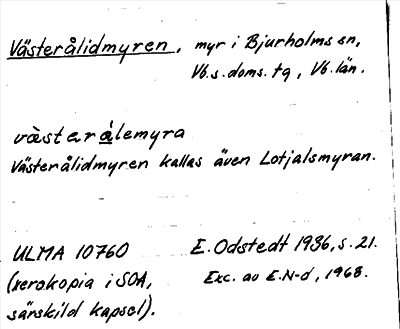 Västerålidmyren, myr i Bjurholms sn,
Vb.s.doms. tg, Vb. län.
västerálemyra
Västerålidmyren kallas även Lotjalsmyran.
ULMA 10760 E. Odstedt 1936, s. 21.
(xerokopia i SOA, Exc. av E.N-d, 1968.
särskild kapsel).